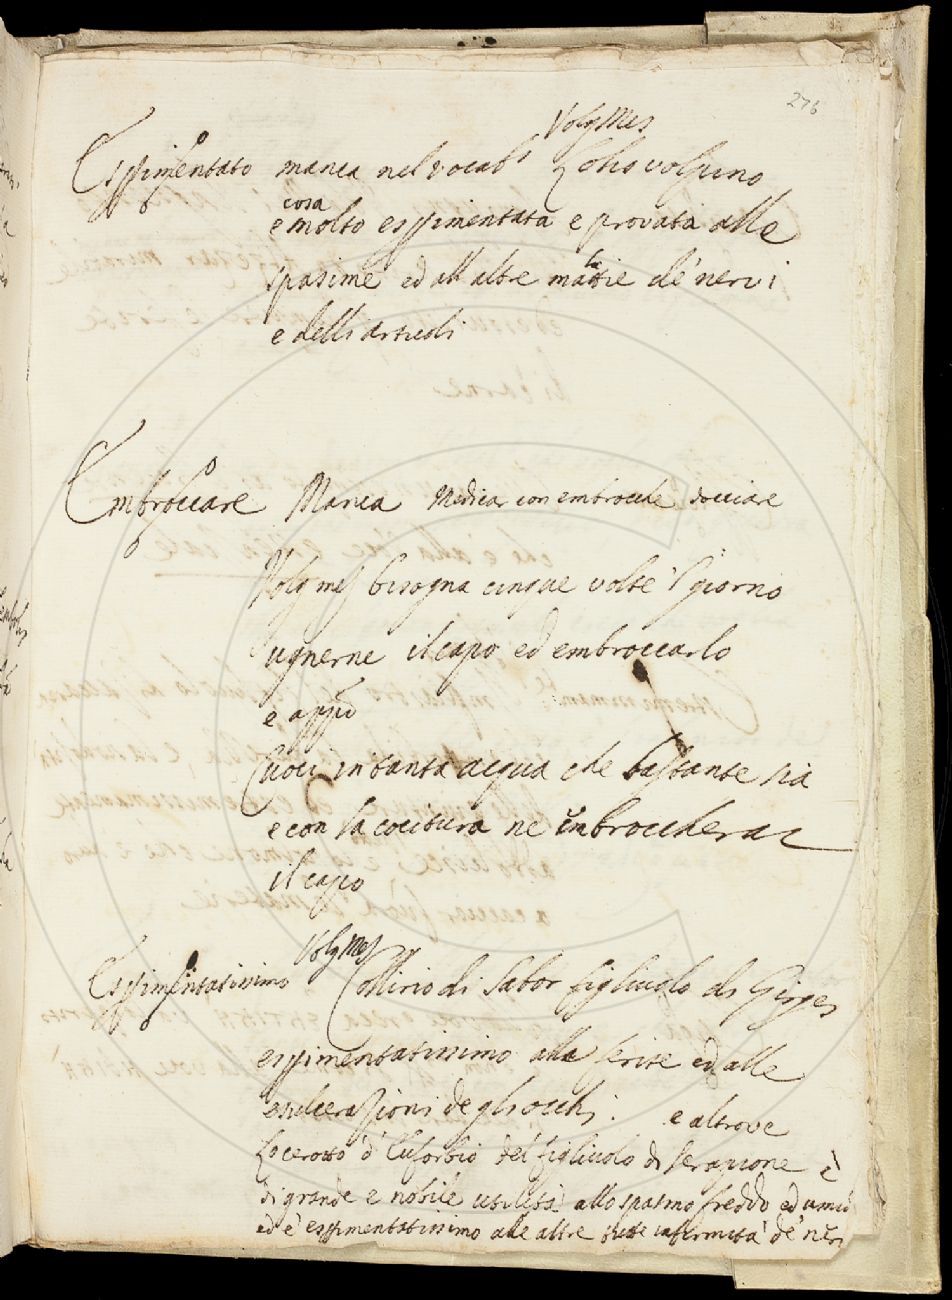 276
Volg Mes
Esperimentato manca nel vocab° L'olio volpino
cosa
e molto esperimentata e provata alle
spasime ed all'altre malattie de' nervi
e delli articoli
Embroccare Manca Medicar con embrocche docciare
Volg mes bisogna cinque volte 'l giorno
ugnerne il capo ed embroccarlo
e app°
Cuoci in tanta acqua che bastante sia
e con la cocitura ne embroccherai
il capo
Volg Mes
Esperimentatissimo Collirio di Sabor figliuolo di Girges
esperimentatissimo alla ferite ed alle
esulcerazioni degli occhi. e altrove
Lo cerotto d'Euforbio del figliuolo di Serapione è
di grande e nobile utilità allo spasmo freddo ed umido
ed è esperimentatissimo alle altre infermità de' nervi